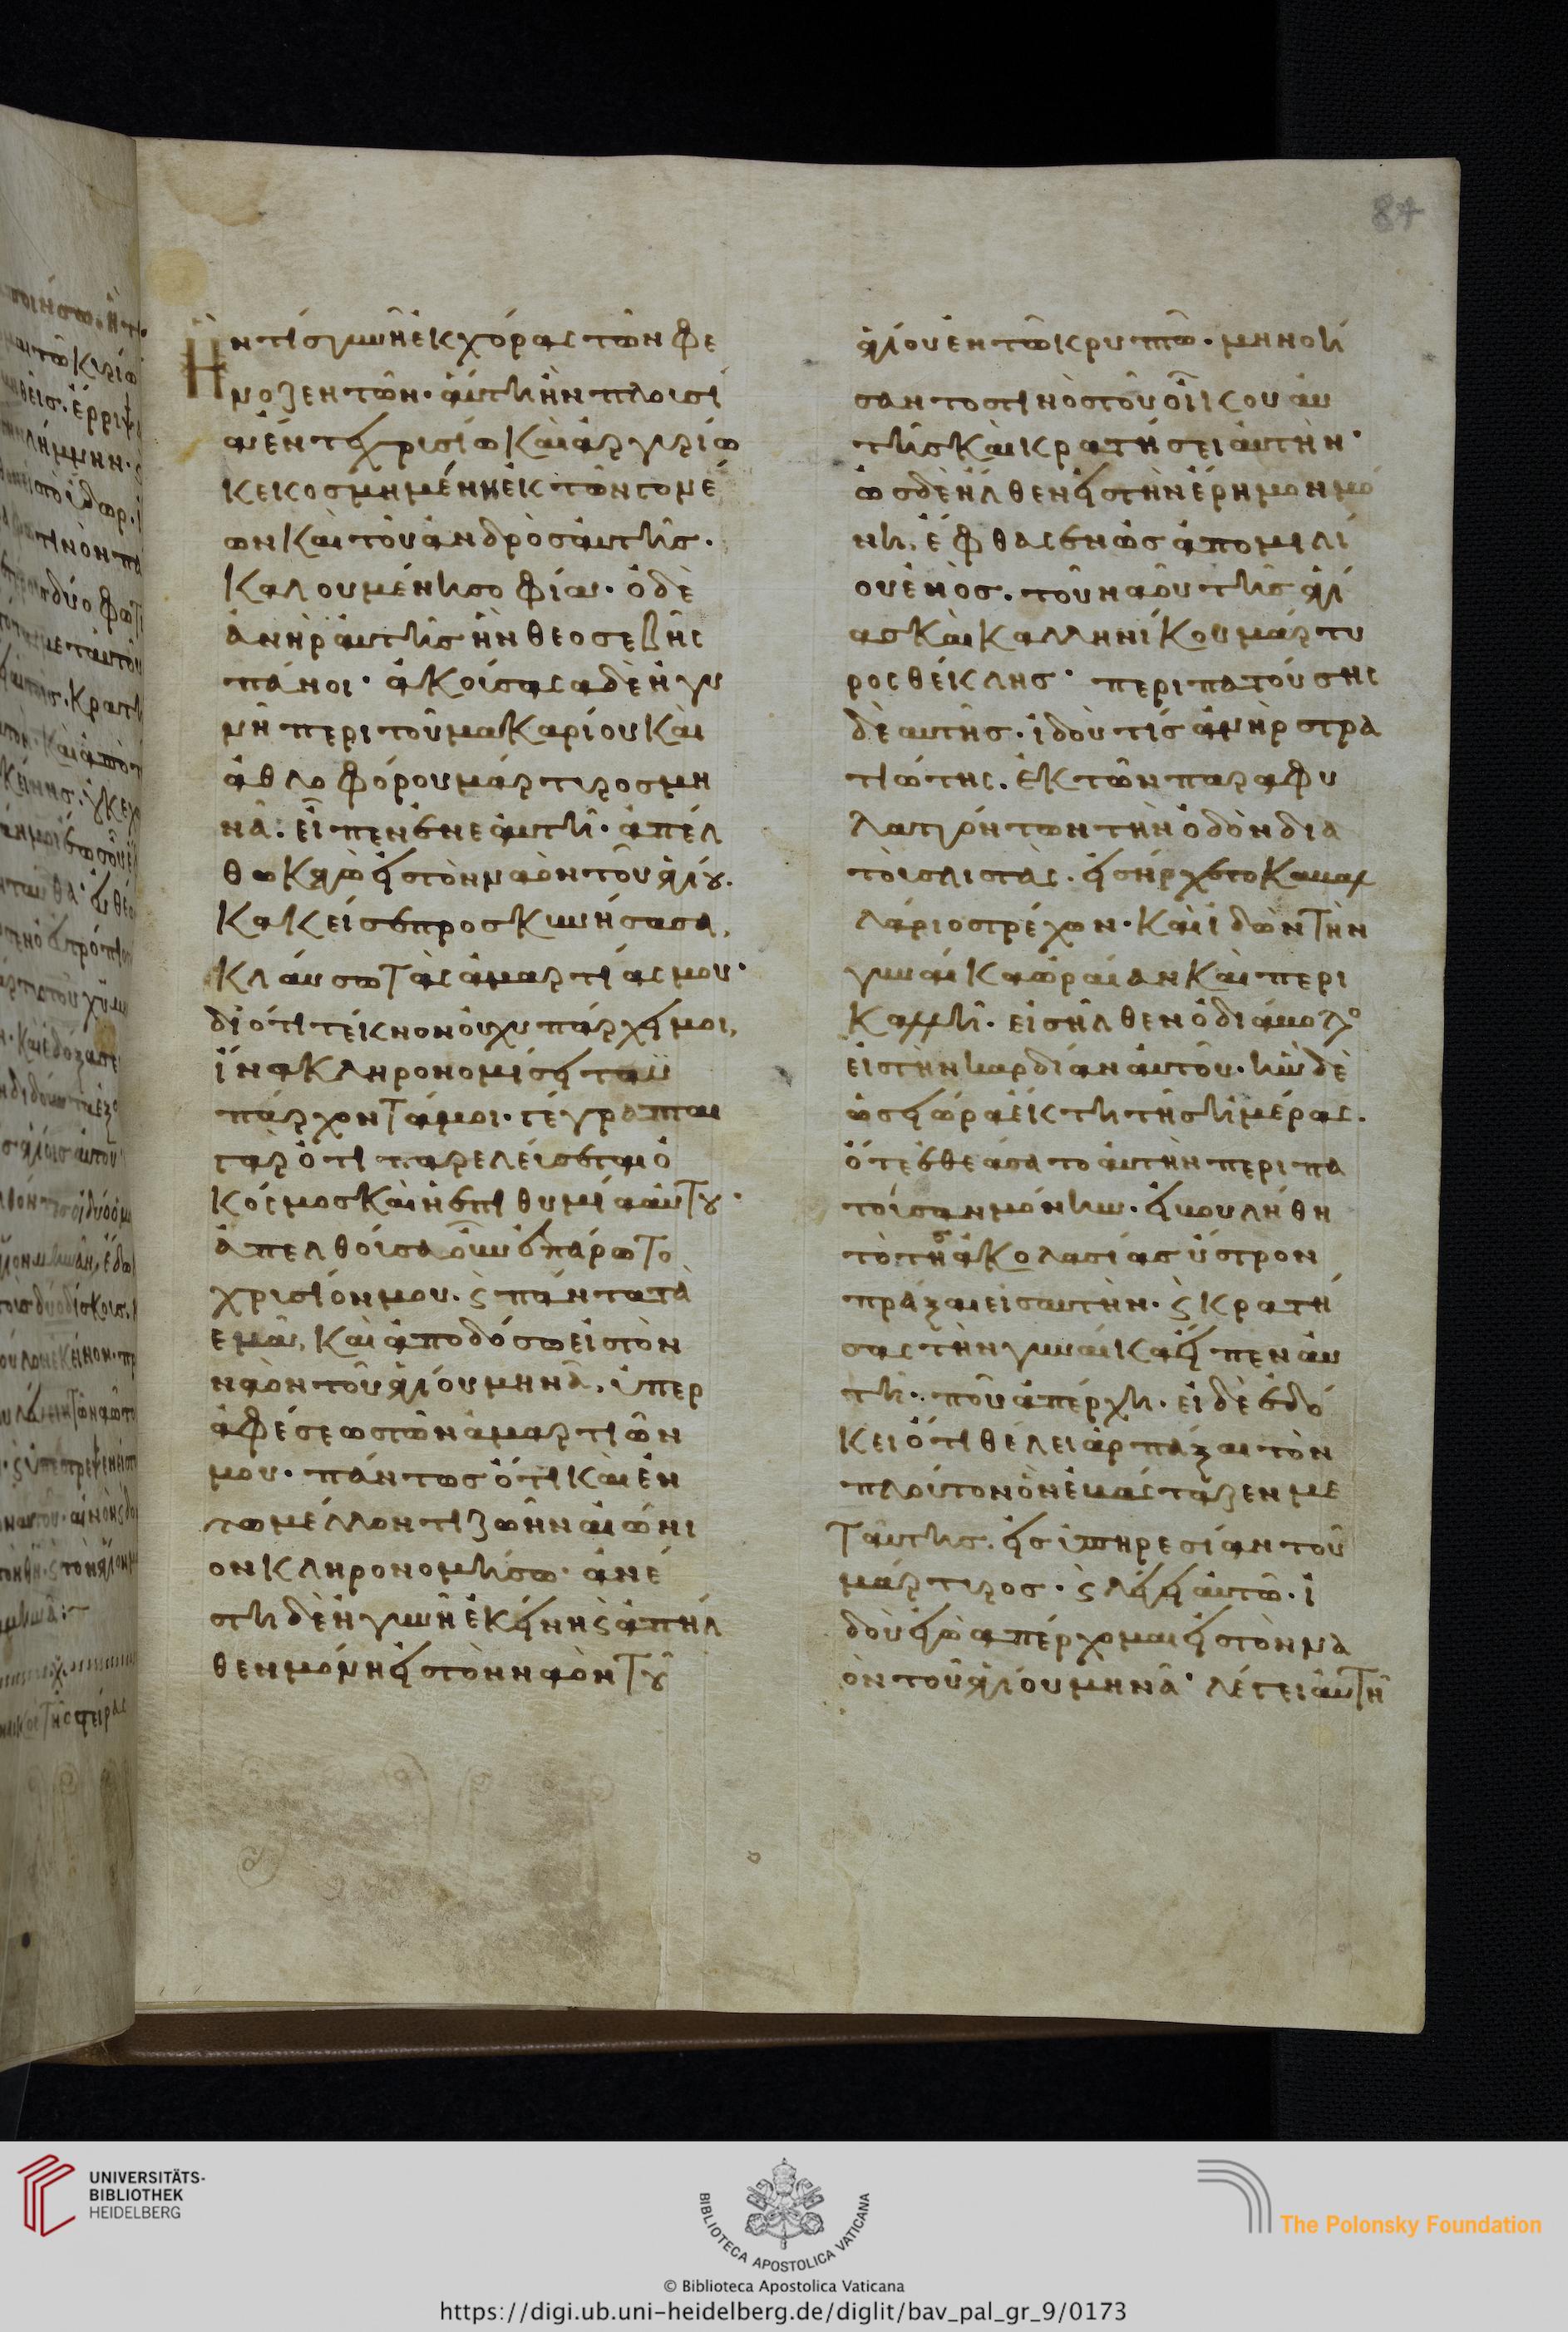 84
Ἦν τίσ γυνὴ ἐκ χόρας τῶν φε
νοξεντῶν· ἁύτη ἦν πλουσί
α ἐν τε χρισίω καὶ ἀργυρίω
κεκοσμημένη ἐκ τῶν γονέ
ων καὶ τοῦ ἀνδρὸσ ἀυτῆσ.
καλουμένη σοφία· ὁ δὲ
ἀνὴρ ἀυτῆσ ἦν θεοσεβὴς
πάνοι· ἀκούσασα δὲ ἡ γυ
νὴ περι τοῦ μακαρίου καὶ
ἀθλοφόρου μάρτυροσ μη
νᾶ. εἶπεν ἐν ἑαυτῆ· ἀπέλ
θω κἀγὼ εἰσ τὸν ναὸν τοῦ ἁγίου.
κακεῖσε προσκυνήσασα,
κλαύσω τὰς ἁμαρτίας μου·
διότι τέκνον ὀυχ υπάρχει μοι,
ἵνα κληρονομίσει τα ὑ
πάρχοντά μοι. γέγραπται
γαρ ὅτι παρελεύσεται ὁ
κόσμοσ καὶ ἡ ἐπιθυμία ἀυτοῦ·
ἀπελθοῦσα οὖν ἐπάρω το
χρισίον μου. ϛ πάντα τὰ
εμὰ, καὶ ἀποδόσω εἰσ τὸν
ναὸν τοῦ ἁγίου μηνᾶ, ὑπερ
ἀφέσεωσ τῶν ἁμαρτιῶν
μου· πάντωσ ὅτι καὶ ἐν
τω μέλλοντι ζωὴν αἰώνι
ον κληρονομήσω· ἀνέ
στη δὲ ἡ γυνὴ ἐκείνη ϛ ἀπῆλ
θεν μόνη εἰσ τὸν ναὸν τοῦ
ἁγίου ἐν τῶ κρυπτῶ· μὴ νοή
σαντοσ τινὸσ τοῦ οἴκου ἀυ
τῆσ καὶ κρατήσει ἀυτὴν·
ὡσ δὲ ἦλθεν εἰσ τὴν ἔρημον μό
νη, ἔφθασεν ὡσ ἀπο μιλί
ου ἑνὸσ. τοῦ ναοῦ τῆσ ἁγί
ασ καὶ καλλινίκου μάρτυ
ρος θέκλησ· περιπατούσης
δὲ αυτῆσ. ἰδοὺ τίσ ἀνὴρ στρα
τιώτης. ἐκ τῶν παραφυ
λαττόντων τὴν ὁδὸν δια
τοὺσ λιστὰς. εἰσήρχετο καβαλ
λάριοσ τρέχων. καὶ ἰδὼν τὴν
γυναῖκα ὡραίαν καὶ περι
καλλῆ. εἰσῆλθεν ὁ διάβολος
εἰσ τὴν καρδίαν ἀυτοῦ. ἦν δὲ
ὡσ εἰ ὥρα ἕκτη τῆσ ἡμέρας.
ὅτε ἐθεάσατο ἀυτὴν περιπα
τοῦσαν μόνην. ἐβουλήθη
τὸ τῆς ἀκολασίασ ὕστρον
πράξαι εἰσ αυτὴν. ϛ κρατή
σας τὴν γυναῖκα εἶπεν ἀυ
τῆ. ποῦ ἀπέρχη. εἰ δὲ ἐδό
κει ὅτι θέλει ἁρπάξαι τὸν
πλοῦτον ὃν ἐβάσταζεν με
τ᾽ αυτῆσ. εἰσ ὑπηρεσίαν τοῦ
μάρτυροσ. ϛ λέγει ἀυτῶ. ἰ
δοὺ ἐγὼ ἀπέρχομαι εἰσ τὸν να
ὸν τοῦ ἁγίου μηνᾶ· λέγει ἀυτῆ
UNIVERSITÄTS-
BIBLIOTHEK
HEIDELBERG
BIBLIOTECA APOSTOLICA VATICANA
The Polonsky Foundation
© Biblioteca Apostolica Vaticana
https://digi.ub.uni-heidelberg.de/diglit/bav_pal_gr_9/0173